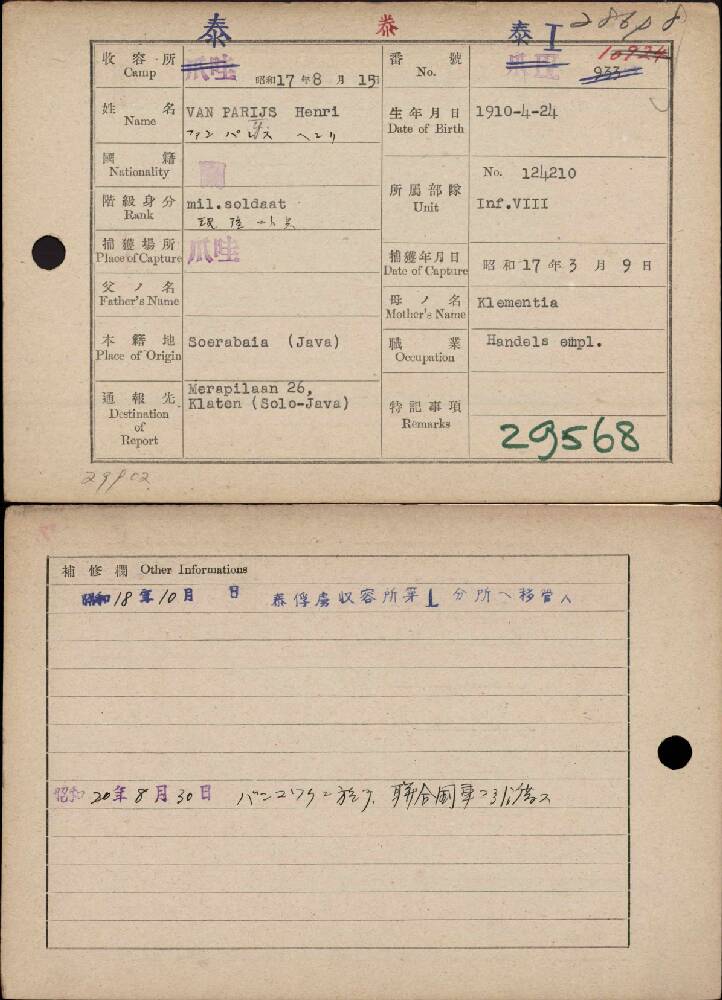 泰 泰 泰 I
收容所 Camp 爪哇 昭和17年8月15日
番號 No. 爪哇 10924 933
姓名 Name VAN PARIJS Henri
ファン パレイス ヘンリ
生年月日 Date of Birth 1910-4-24
國籍 Nationality 蘭
所屬部隊 Unit No. 124210
Inf.VIII
階級身分 Rank mil.soldaat
捕獲場所 Place of Capture 爪哇
捕獲年月日 Date of Capture 昭和17年3月9日
父ノ名 Father's Name
母ノ名 Mother's Name Klementia
本籍地 Place of Origin Soerabaia (Java)
職業 Occupation Handels empl.
通報先 Destination of Report Merapilaan 26,
Klaten (Solo-Java)
特記事項 Remarks
29568
補修欄 Other Informations
昭和18年10月 日 泰俘虜収容所第1分所へ移管ス
昭和20年8月30日 バンコックニ於テ、聯合国軍ニ引渡ス